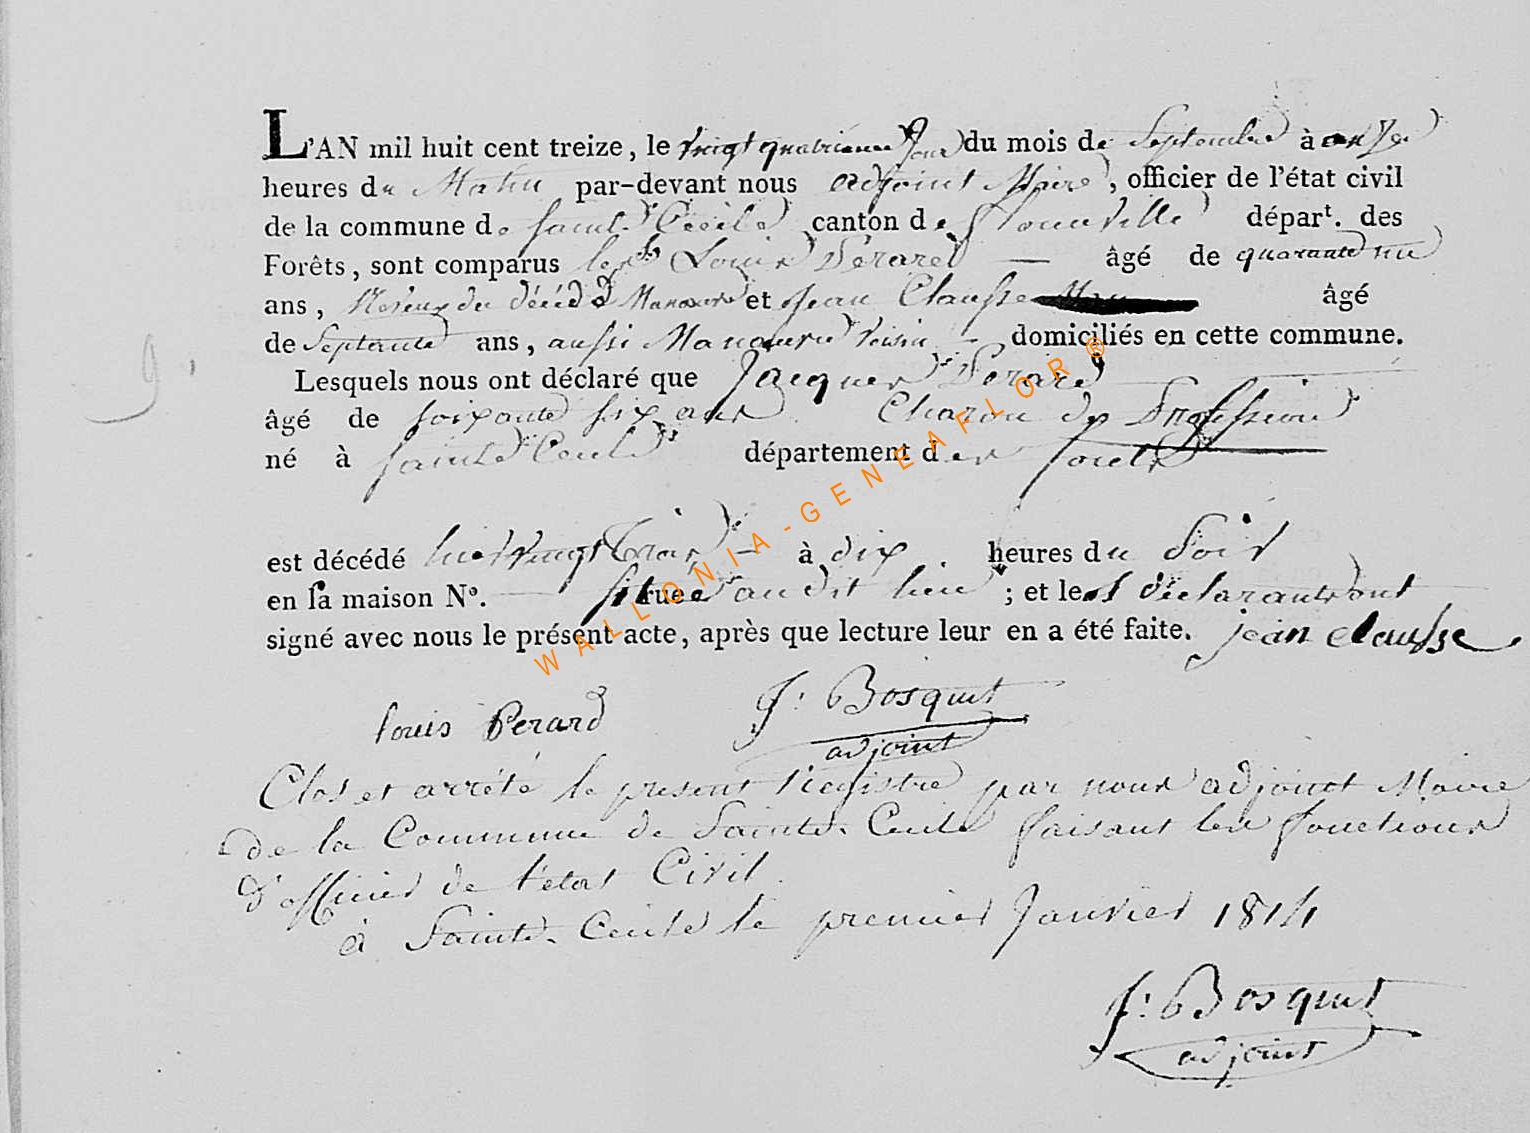 L'AN mil huit cent treize, le vingt quatrieme Jour du mois de Septembre à onze
heures du Matin par-devant nous adjoint Maire, officier de l'état civil
de la commune de Sainte Cecile canton de Florenville dépar^t. des
Forêts, sont comparus les Srs Louis Perard — âgé de quarante un
ans, Neveux du décédé Manœuvre et Jean Clausse âgé
de Septante ans, aussi Manœuvre voisin - domiciliés en cette commune.
Lesquels nous ont déclaré que Jacques Perard
âgé de soixante six ans Charon de Profession
né à Sainte Cecile département des forets
est décédé hier vingt trois — à dix heures du Soir
en sa maison N°. — située au dit lieu ; et les déclarants ont
signé avec nous le présent acte, après que lecture leur en a été faite. jean clausse
louis Perard J: Bosquet
adjoint
Clos et arrété le present Registre par nous adjoint Maire
de la Commune de Sainte-Cecile faisant les fonctions
d'officier de l'etat Civil.
à Sainte-Cecile le premier Janvier 1814
J: Bosquet
adjoint
9.
WALLONIA-GENEAFLOR®